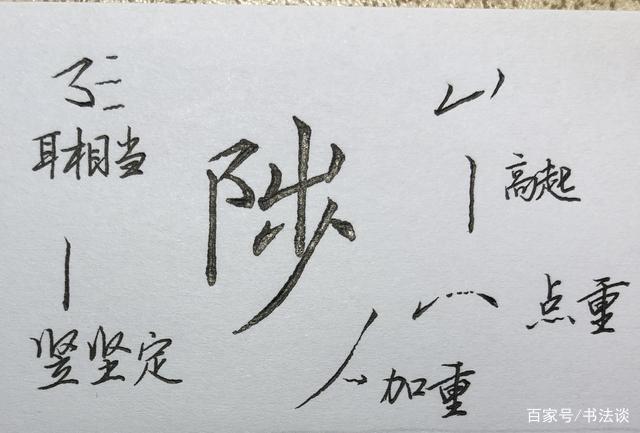 耳相当
陟
高起
竖坚定
点重
加重
百家号/书法谈